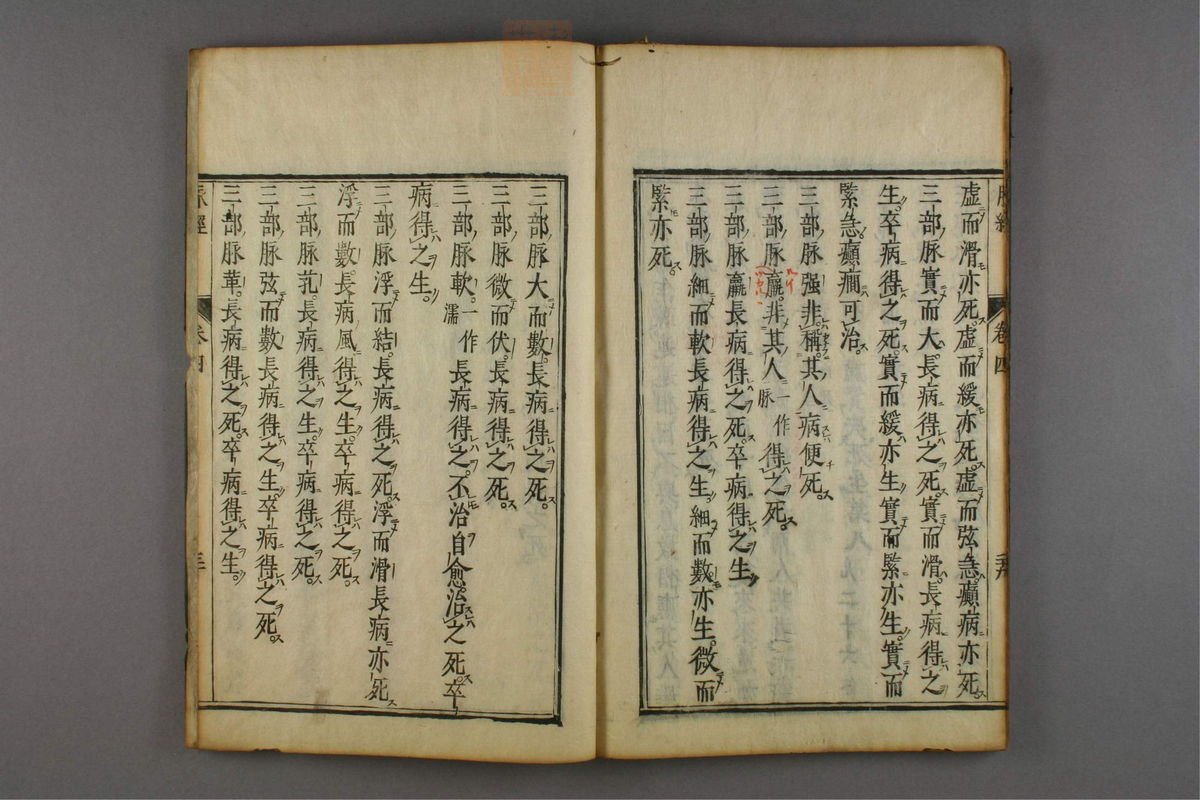 虛而滑亦死。虛而緩亦死。虛而弦急癲病亦死
三部脉實而大長病得之死實而滑長病得之
生卒病得之死實而緩亦生實而緊亦生。實而
緊急癲癇可治。
三部脉强非稱其人病便死。
三部脉羸。非其人一作脉得之死。
三部脉麤長病得之死。卒病得之生
三部脉細而軟長病得之生細而數亦生。微而
緊亦死。
三部脉大而數長病得之死。
三部脉微而伏。長病得之死。
三部脉軟。一作濡長病得之。不治自愈治之死。卒
病得之生。
三部脉浮而結。長病得之死。浮而滑長病亦死
浮而數。長病風得之生。卒病得之死。
三部脉芤。長病得之生。卒病得之死。
三部脉弦而數長病得之生卒病得之死。
三部脉革。長病得之死。卒病得之生。
脉經
卷四